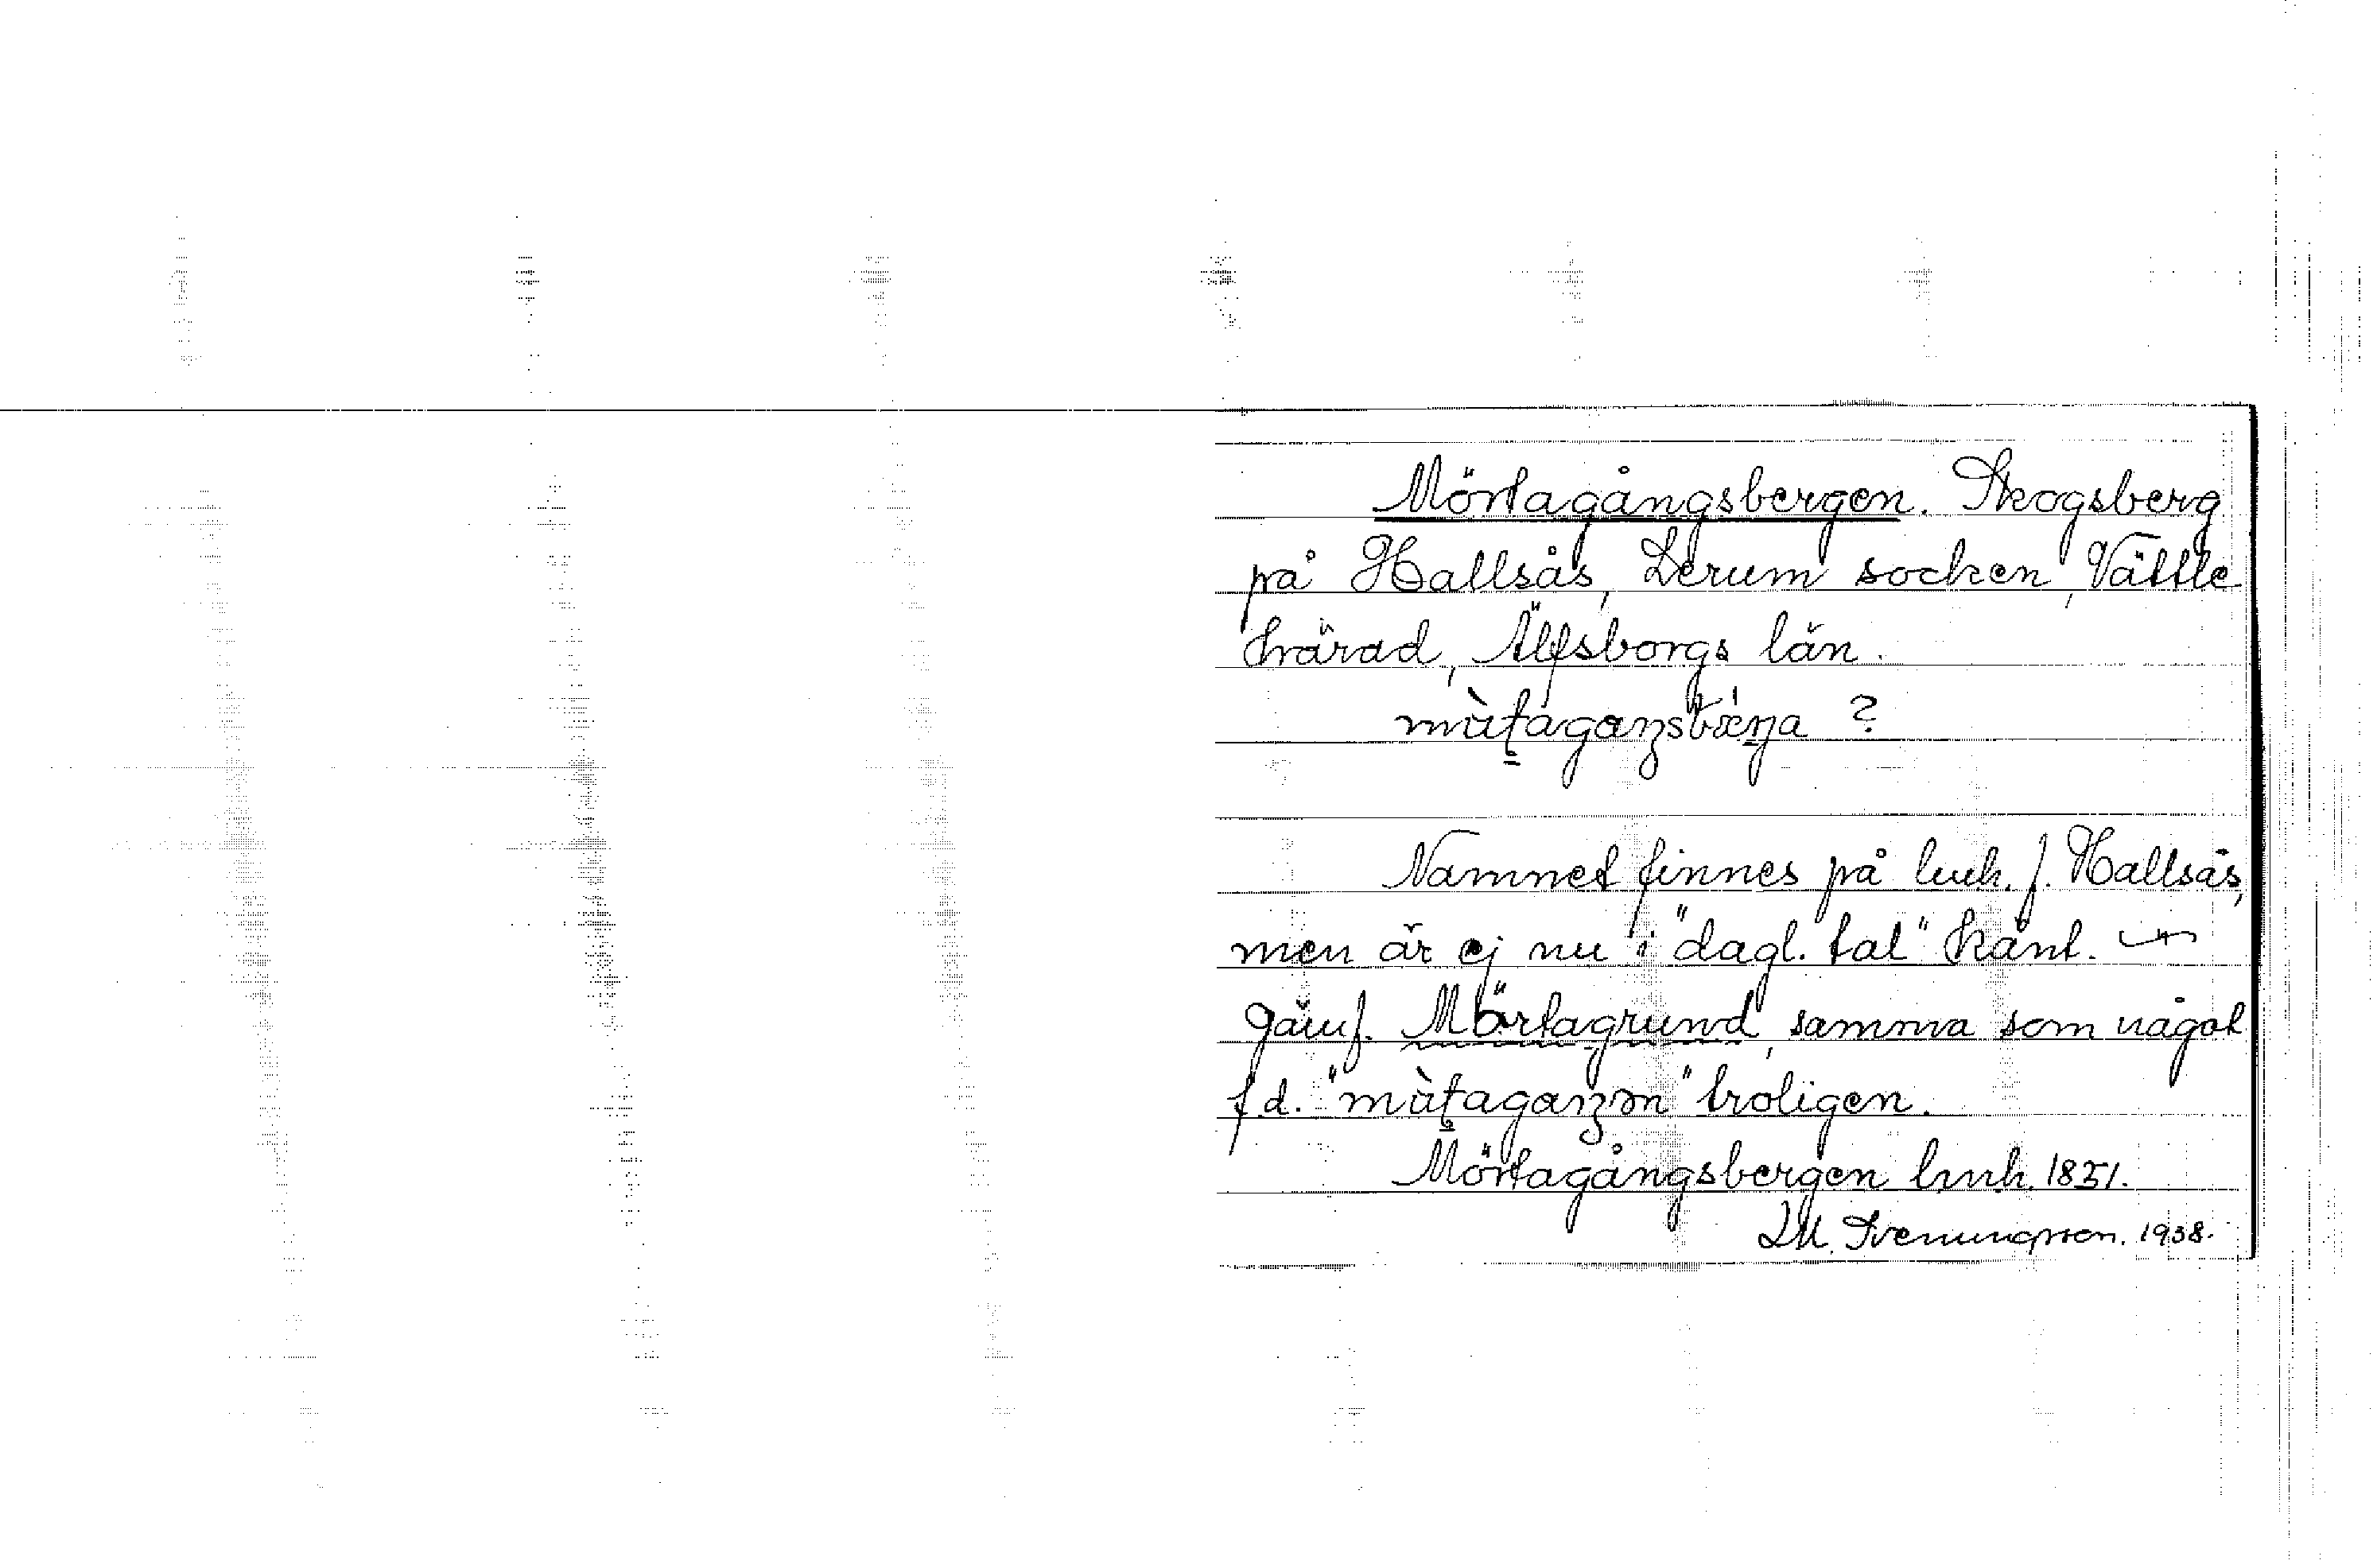 Mörtagångsbergen. Skogsberg
på Hallsås, Lerum socken, Vättle
härad, Älfsborgs län.
Namnet finnes på lmk. f. Hallsås,
men är ej nu i "dagl. tal" känt.
Jämf. Mörtagrund, samma som något
f.d. troligen.
Mörtagångsbergen lmk. 1851.
LM. Svenungsson. 1938.